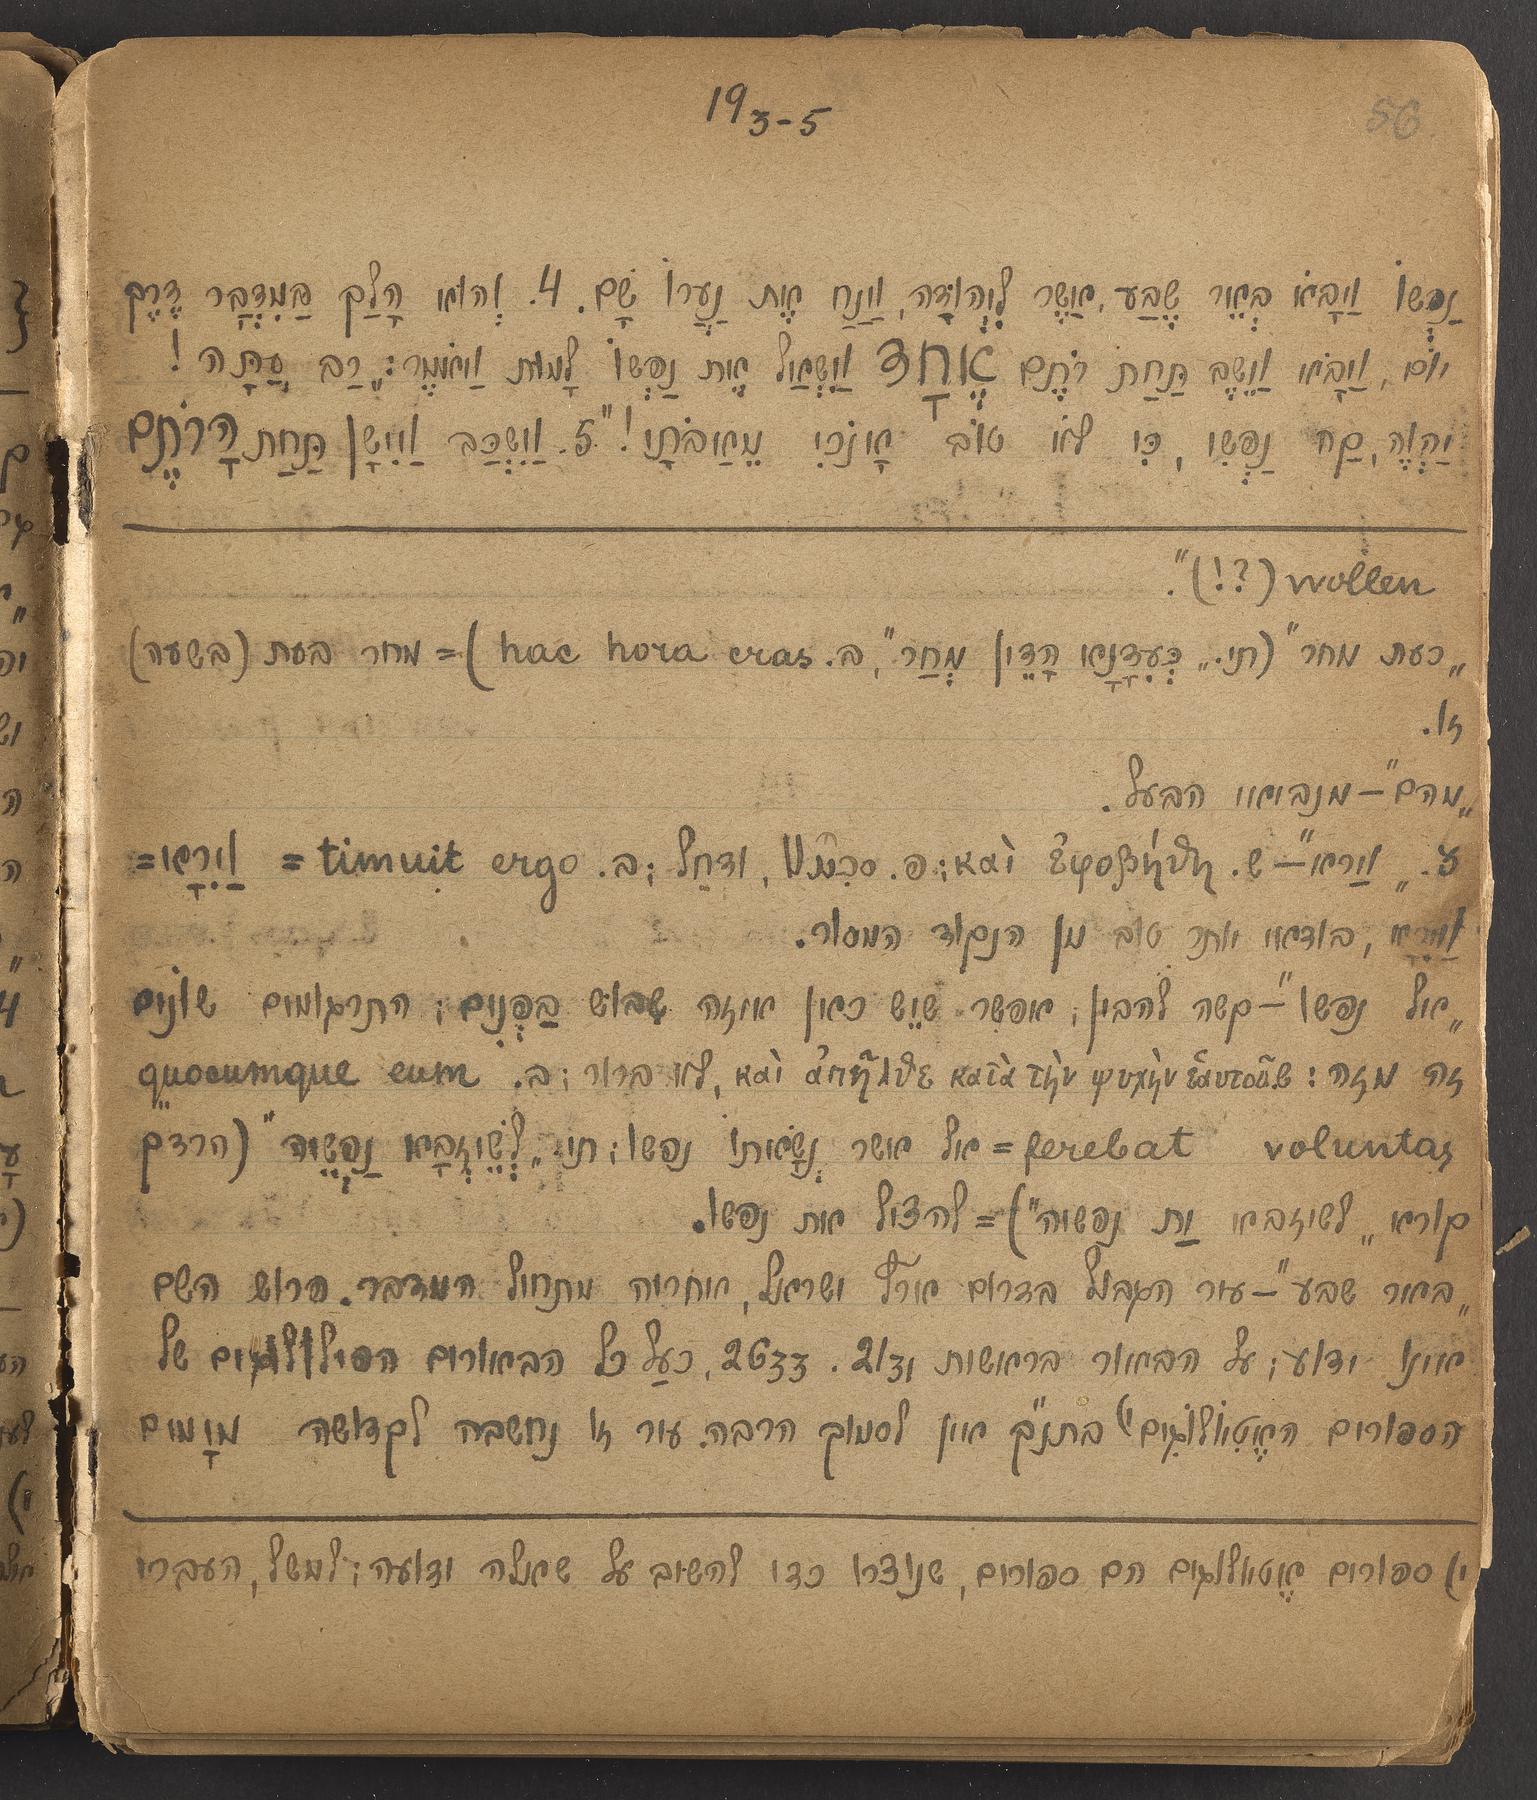 19 3-5
56
נַפְשׁוֹ וַיָּבֹא בְּאֵר שֶׁבַע, אֲשֶׁר לִיהוּדָה, וַיַּנַּח אֶת נַעֲרוֹ שָׁם. 4. וְהוּא הָלַךְ בַּמִּדְבָּר דֶּרֶךְ
יוֹם, וַיָּבֹא וַיֵּשֶׁב תַּחַת רֹתֶם אֶחָד וַיִּשְׁאַל אֶת נַפְשׁוֹ לָמוּת וַיֹּאמֶר: „רַב עַתָּה!
יַהְוֶה, קַח נַפְשִׁי, כִּי לֹא טוֹב אָנֹכִי מֵאֲבֹתָי!" 5. וַיִּשְׁכַּב וַיִּישָׁן תַּחַת הָרֹתֶם
wollen (!?)".
„כעת מחר" (תי. „כְּעִדָּנָא הָדֵין מְחַר", ב. hac hora cras) = מחר בעת (בשעה)
זו.
„מהם" – מנביאי הבעל.
3. „וַיַּרְא" – ש. καὶ ἐφοβήθη; פ. ודחַל; ב. timuit ergo = וַיִּרָא =
וַיִּירָא, בודאי יותר טוב מן הנקוד המסור.
„אל נפשו" – קשה להבין; אפשר שיֵש כאן איזה שבוש בַּפְּנִים; התרגומים שונים
זה מזה: ש. καὶ ἀπῆλθε κατὰ τὴν ψυχὴν ἑαυτοῦ, לא ברור; ב. quocumque eum
ferebat voluntas = אל אשר נְשָׂאַתּוּ נפשו; תי. „לְשֵׁיזָבָא נַפְשֵׁיהּ" (הרד״ק
קורא „לשיזבא יַת נפשיה") = להציל את נפשו.
„באר שבע" – עיר הגבול בדרום ארץ ישראל, אחריה מתחיל המדבר. פרוש השם
אינו ידוע; על הבאור בראשית 21 31. 26 33, כעַל כל הבאורים הפילולוגיים של
הספורים הָאֶטִיאוֹלוֹגִיִּים י) בתנ״ך אין לסמוך הרבה. עיר זו נחשבה לקדושה מִימים
י) ספורים אֶטיאולוגיים הם ספורים, שנוצרו כדי להשיב על שאלה ידועה; למשל, העברי